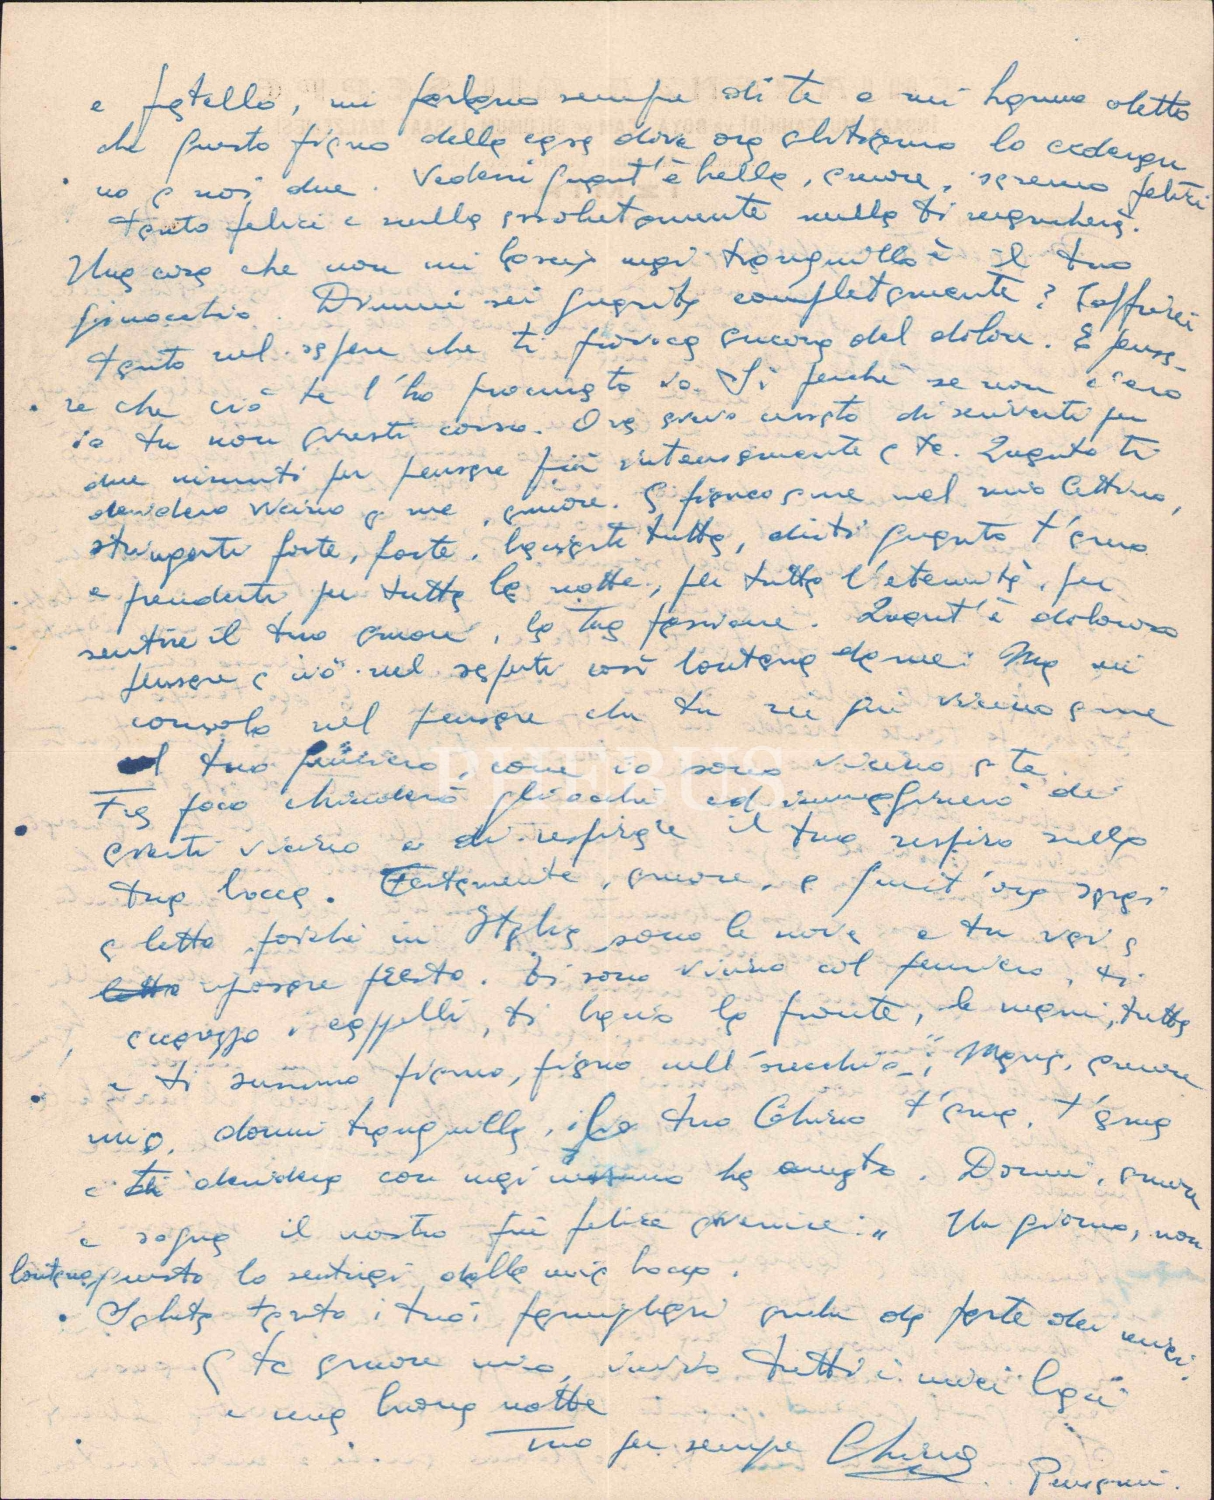 e fratello, mi parlano sempre di te e mi hanno detto
che questo piano della casa dove ora abitiamo lo cederan
no a noi due. Vedessi quant'è bella, amore, saremo felici
tanto felici e nulla assolutamente nulla ti mancherà.
Una cosa che non mi lascia mai tranquillo è il tuo
ginocchio. Dimmi sei guarita completamente? Soffrirei
tanto nel sapere che ti provoca ancora del dolore. E pensa-
re che ciò te l'ho procurato io. Sì perchè se non c'ero
io tu non avresti corso. Ora avevo cessato di scriverti per
due minuti per pensare più intensamente a te. Quanto ti
desidero vicino a me, amore. A fianco a me nel mio lettino,
stringerti forte, forte, baciarti tutta, dirti quanto t'amo
e prenderti per tutta la notte, per tutta l'eternità, per
sentire il tuo amore, la tua passione. Quant'è doloroso
pensare a ciò nel saperti così lontana da me. Ma mi
consolo nel pensare che tu sei qui vicino a me
col tuo pensiero, come io sono vicino a te.
Fra poco chiuderò gli occhi ed immaginerò di
averti vicino e di respirare il tuo respiro sulla
tua bocca. Certamente, amore, a quest'ora sarai
a letto poichè in Italia sono le nove e tu vai a
letto riposare presto. Ti sono vicino col pensiero, ti
accarezzo i capelli, ti bacio la fronte, le mani, tutta
e ti sussurro piano, piano nell'orecchio: "Maria, amore
mio, dormi tranquilla, il tuo Chino t'ama, t'ama
e ti desidera con mai nessuno ha amato. Dormi, amore
e sogna il nostro più felice avvenire." Un giorno, non
lontano, questo lo sentirai dalla mia bocca.
Saluta tanto i tuoi famigliari anche da parte dei miei.
A te amore mio, invio tutti i miei baci
e una buona notte
Tuo per sempre Chino
Pensami.
PHEBUS